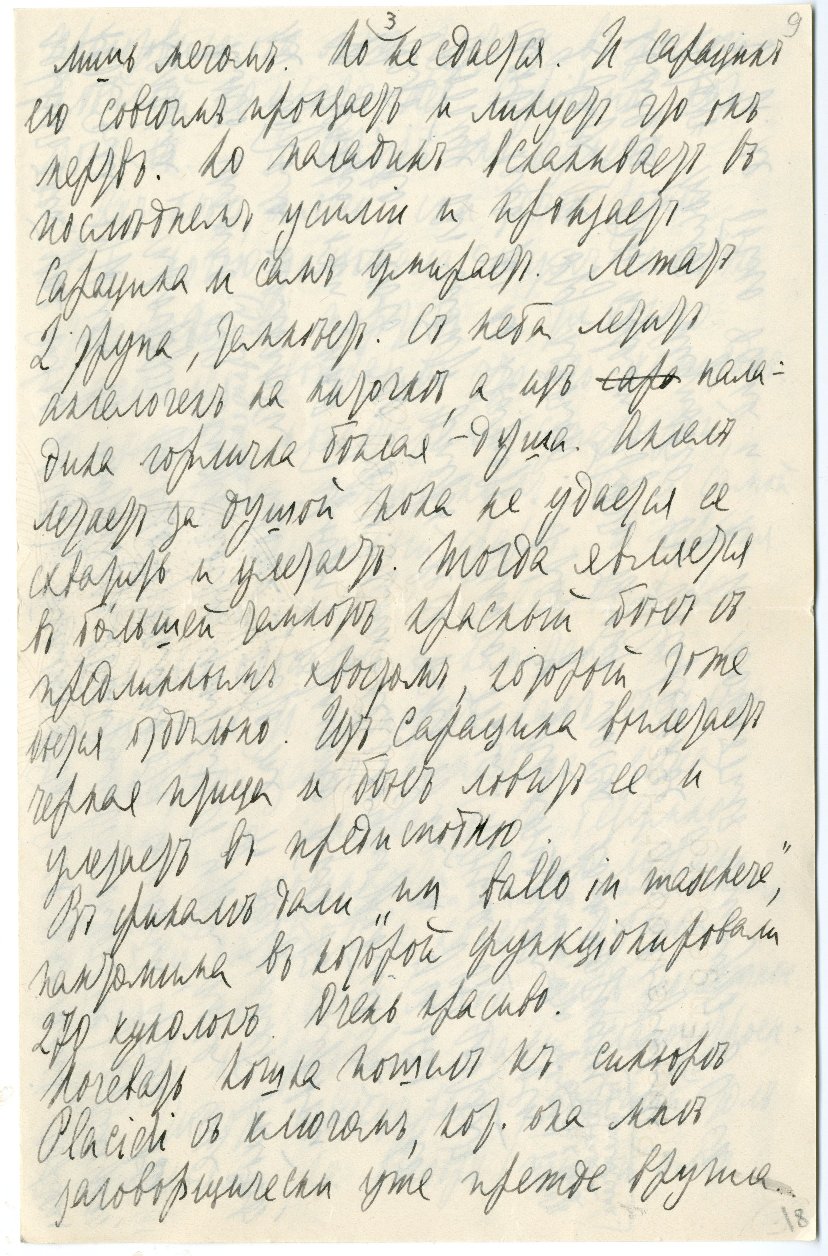 3
9
лишь мечомъ. Но не сдается. И сарацинъ
его совсѣмъ пронзаетъ и ликуетъ что онъ
мертвъ. Но паладинъ вскакиваетъ въ
послѣднемъ усиліи и пронзаетъ
Сарацина и самъ умираетъ. Лежатъ
2 трупа, темнѣетъ. Съ неба летитъ
ангелочекъ на ниточкѣ, а изъ сара пала-
дина горличка бѣлая - душа. Ангелъ
летаетъ за душой пока не удается ее
схватить и улетаетъ. Тогда является
въ большей темнотѣ красный бѣсъ съ
предлиннымъ хвостомъ, который тоже
вьется отдѣльно. Изъ Сарацина вылетаетъ
черная птица и бѣсъ ловитъ ее и
улетаетъ въ преисподнюю.
Въ финалѣ дали „un ballo in maschera",
пантомима въ которой функціонировали
270 куколокъ. Очень красиво.
Ночевать кошка пошелъ къ синьорѣ
Placidi съ ключомъ, кот. она мнѣ
заговорщически уже прежде вручила.
18